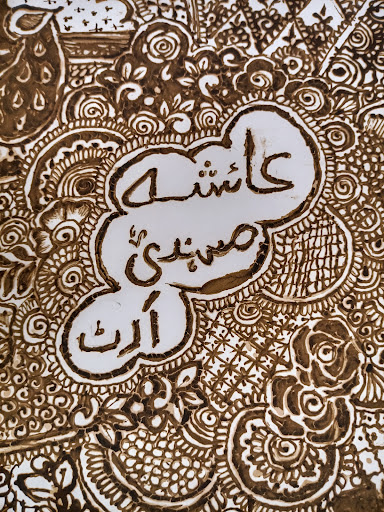 عائشہ
مہندی
آرٹ